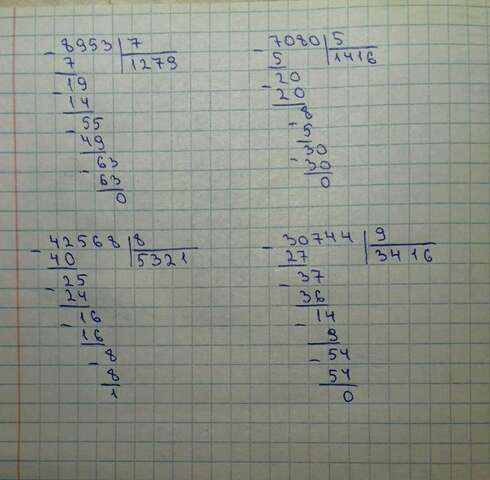 - 8953 7
7 1279
- 19
14
- 55
49
- 63
63
0
- 7080 5
5 1416
- 20
20
- 8
5
- 30
30
0
- 42568 8
40 5321
- 25
24
- 16
16
- 8
8
1
- 30744 9
27 3416
- 37
36
- 14
9
- 54
54
0